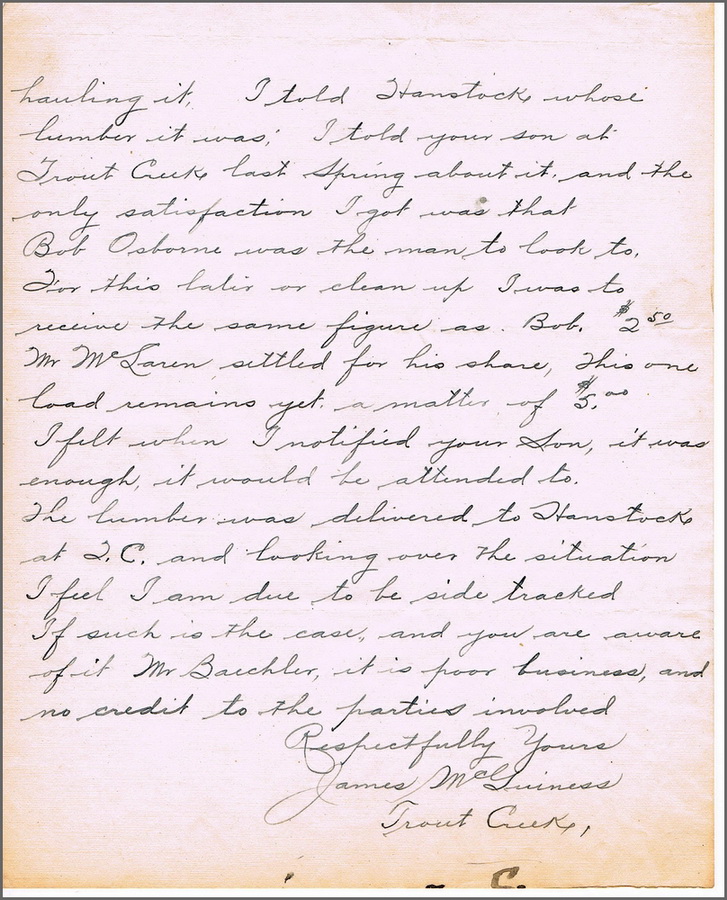 hauling it, I told Hanstock, whose
lumber it was; I told your son at
Trout Creek, last Spring about it. and the
only satisfaction I got was that
Bob Osborne was the man to look to.
For this latir or clean up I was to
receive the same figure as. Bob. $2 50
Mr McLaren, settled for his share, This one
load remains yet. a matter of $5.00
I felt when I notified your Son, it was
enough, it would be attended to.
The lumber was delivered to Hanstock
at T.C. and looking over the situation
I feel I am due to be side tracked
If such is the case, and you are aware
of it Mr Baechler, it is poor business, and
no credit to the parties involved
Respectfully Yours
James McGuiness
Trout Creek,